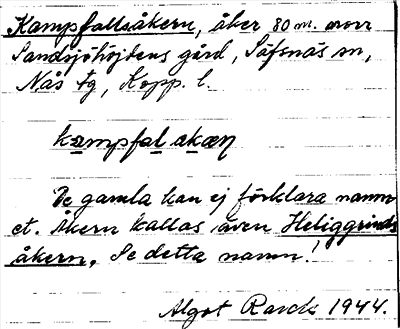 Kampfallsåkern, åker 80 m. norr
Sandsjöhöjdens gård, Säfsnäs sn,
Nås tg, Kopp. l.
kampfal akæn
De gamla kan ej förklara namn-
et. Åkern kallas även Heliggrinds
åkern. Se detta namn!
Algot Rarck 1944.